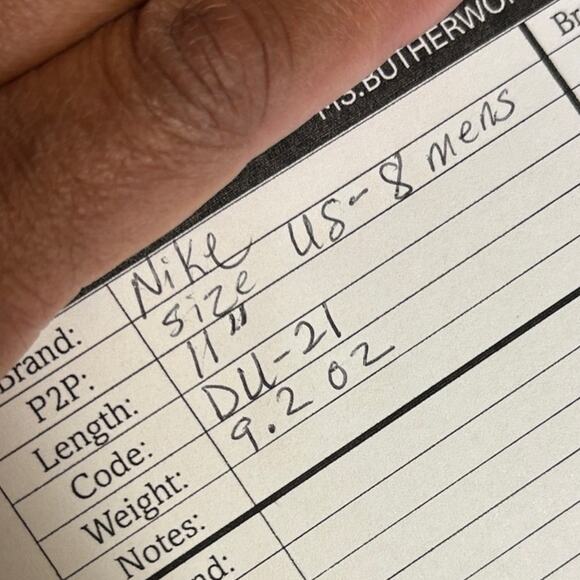 MS.BUTHERWOR
Br
Brand: Nike
P2P: size US-8 mens
Length: 11"
Code: DU-21
Weight: 9.2 oz
Notes:
nd: